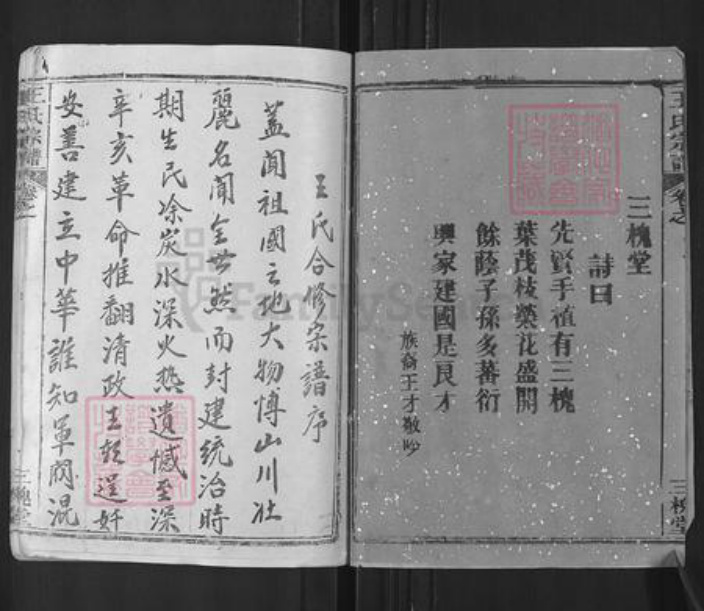 王氏宗譜
卷之
三槐堂
三槐堂
詩曰
先賢手植有三槐
葉茂枝榮花盛開
餘蔭子孫多蕃衍
興家建國是良才
族裔王才敬吵
王氏合修宗譜序
蓋聞祖國之地大物博山川壯
麗名聞全世然而封建統治時
期生民凃炭水深火热遺憾至深
辛亥革命推翻清政王朝逞奸
安善建立中華誰知軍閥混
王氏宗譜
卷之一
三槐堂
FamilySearch